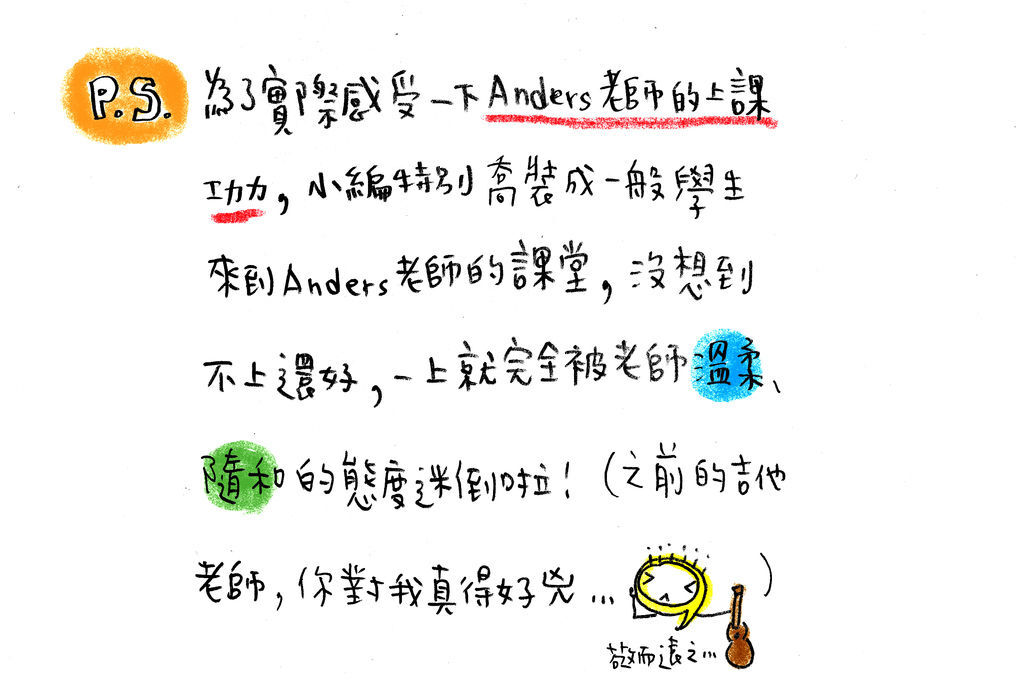 P.S. 為了實際感受一下Anders老師的上課
功力，小編特別喬裝成一般學生
來到Anders老師的課堂，沒想到
不上還好，一上就完全被老師溫柔、
隨和的態度迷倒啦！（之前的吉他
老師，你對我真得好兇...）
敬而遠之...